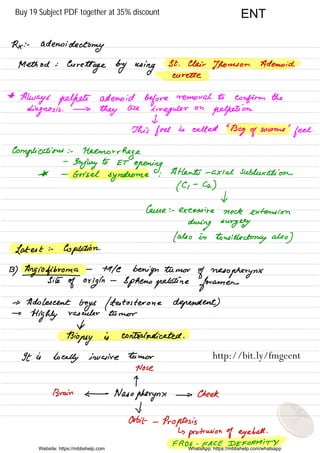 Buy 19 Subject PDF together at 35% discount
ENT
Rx:- adenoidectomy
Method : Curettage by using St. Clair Thomson Adenoid
curette
* Always palpate adenoid before removal to confirm the
diagnosis. → they are irregular on palpation
↓
This feel is called "Bag of worms" feel.
Complications :- Haemorrhage
- Injury to ET opening
* - Grisel syndrome : Atlanto-axial subluxation
(C1 - C2)
↓
Cause :- excessive neck extension
during surgery
(also in tonsillectomy also)
Latest :- Coblation
B) Angiofibroma - M/C benign tumor of nasopharynx
Site of origin - Sphenopalatine foramen
→ Adolescent boys (testosterone dependent)
→ Highly vascular tumor
↓
Biopsy is contraindicated.
It is locally invasive tumor
http://bit.ly/fmgeent
Nose
↑
Brain ← Nasopharynx → Cheek
↓
Orbit - Proptosis
↳ protrusion of eyeball.
FROG-FACE DEFORMITY
Website: https://mbbshelp.com
WhatsApp: https://mbbshelp.com/whatsapp